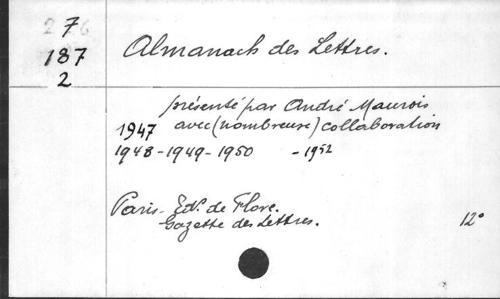 7
187
2
Almanach des Lettres.
présenté par André Maurois
1947 avec (nombreuse) collaboration
1948-1949-1950 -1952
Paris- Edns. de Flore.
Gazette des Lettres.
12°